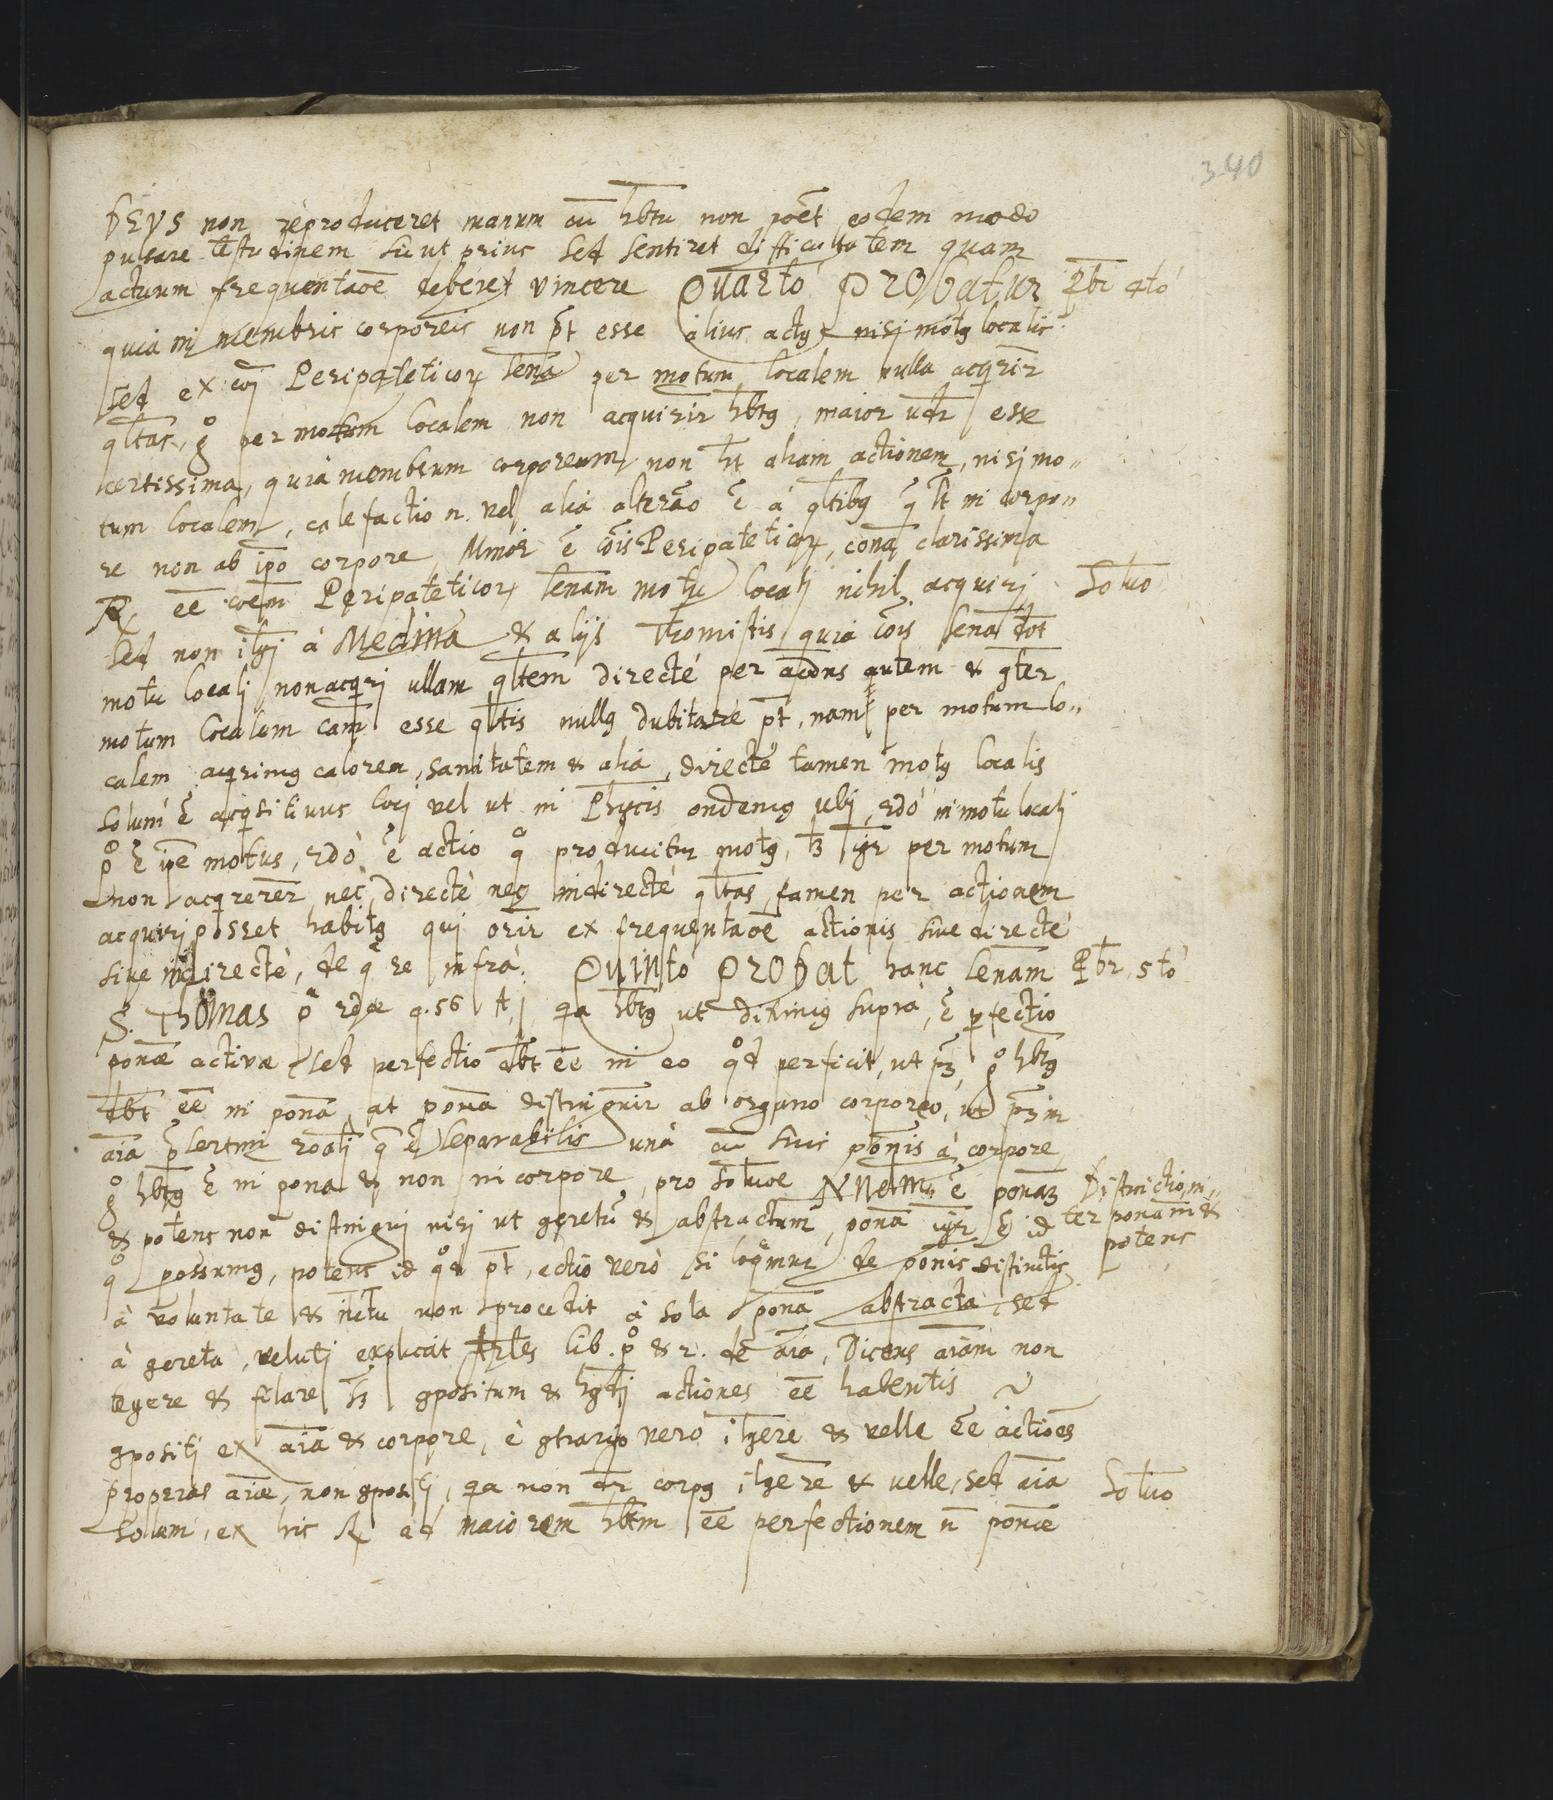 340
DEUS non reproduceret manum cū hb̄tu non poēt eodem modo
pulsare testudinem sicut prius sed sentiret difficultatem quam
actuum frequentaōē deberet vincere Quarto PROBatur
Pb̄r 4to
quia in membris corporeis non pt̄ esse alius actꝯ nisi motꝯ localis
sed ex coī Peripateticoꝝ senā per motum localem nulla acqrir̄
qltas, gº per motum localem non acquirir̄ hb̄tꝯ, maior vdr̄ esse
certissima, quia membrum corporeum non ht̄ aliam actionem, nisi mo„
tum localem, calefactio n. vel alia alteraō ē à qltibꝯ q̄ st̄ in corpo„
re non ab ip̄o corpore, Minor ē cōis Peripateticoꝝ, conā clarissima
℞ eē coēm Peripateticoꝝ senām motu locali nihil acquiri
Solutio
sed non itlgi à Medina & alijs Thomistis quia cōis senā
motu locali non acqri ullam qltem directé per accns autem &
motum localem cam̄ esse qltis nullꝯ dubitare pt̄, nam per motum lo„
calem acqrimꝯ calorem, sanitatem & alia, directé tamen motꝯ localis
solum ē acqsitivus loci vel ut in Phycis ondemꝯ ubi, 2do in motu locali
pº ē ip̄e motus, 2do ē actio qº producitur motꝯ, lꝫ igr̄ per motum
non acqrerer̄, nec directé neqꝫ indirecté qltas, tamen per actionem
acquiri posset habitꝯ qui orir̄ ex frequentaōē actionis sive directé
sive indirectè, de q̄ re infrà. Quinto PROBat hanc senām
Pb̄r 5to
S. Thomas pª 2dæ q. 56 A, j qa hb̄tꝯ ut diximꝯ supra, ē perfectio
ponæ activæ sed perfectio db̄t eē in eo qd perficit, ut pꝫ, gº hb̄tꝯ
db̄t eē in ponā, at ponā distinguir̄ ab organo corporeo, ut
aīa separabilis unà cū suis ponis à corpore
gº hb̄tꝯ ē in ponā & non in corpore, pro solutioē ē ponam
Distinctio in„
ter ponam &
potens
& potens non distingui nisi ut cretū & abstractum, ponā igr̄ ē id
qº possumꝯ, potens id qd pt̄, actio verò si loqmur de ponis distinctis
à voluntate & intu non procedit à sola ponā abstracta, sed
à creta, veluti explicat Arles lib. pº & 2. de aīa, Dicens aīam non
tegere & filare lꝫ ꝯpositum & actiones eē habentis
ꝯpositi ex aīa & corpore, è ꝯtrario vero itlgere & velle eē actiōēs
proprias aīæ, non ꝯpositi, qa non dr̄ corpꝯ itlgere & velle, sed aīa
Solutio
solum, ex his ℞ ad maiorem hb̄tm eē perfectionem n̄ ponæ